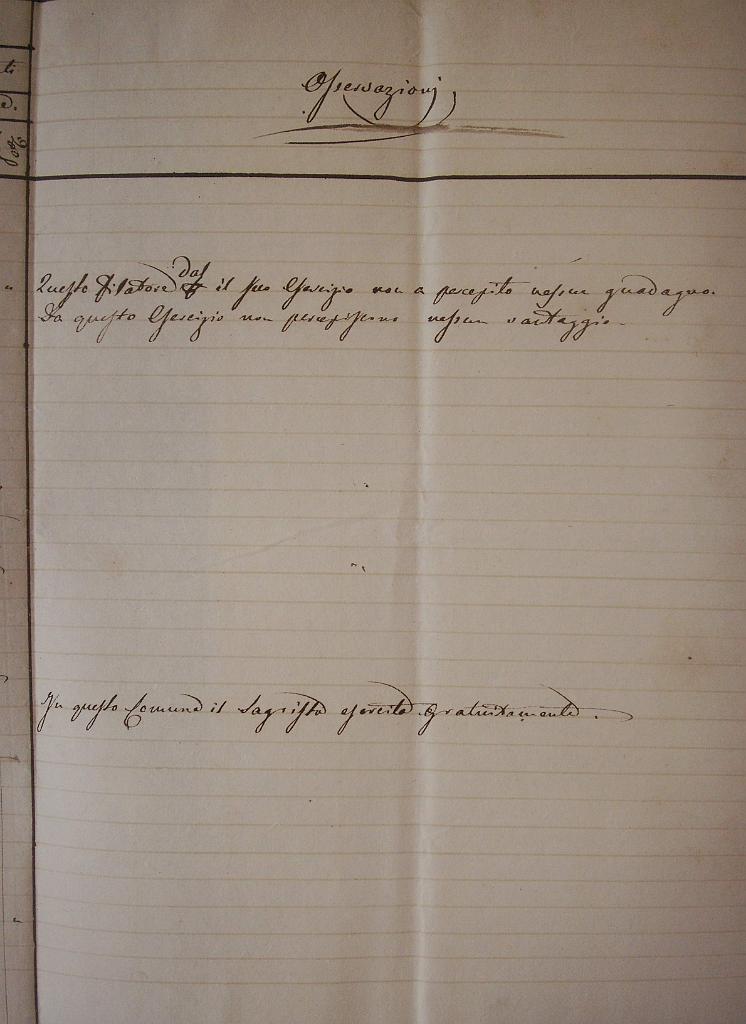 Osservazioni
Questo Filatore dal il suo Esercizio non a percepito nessun guadagno.
Da questo Esercizio non percepiscono nessun vantaggio.
In questo Comune il Sagrista esercita gratuitamente.